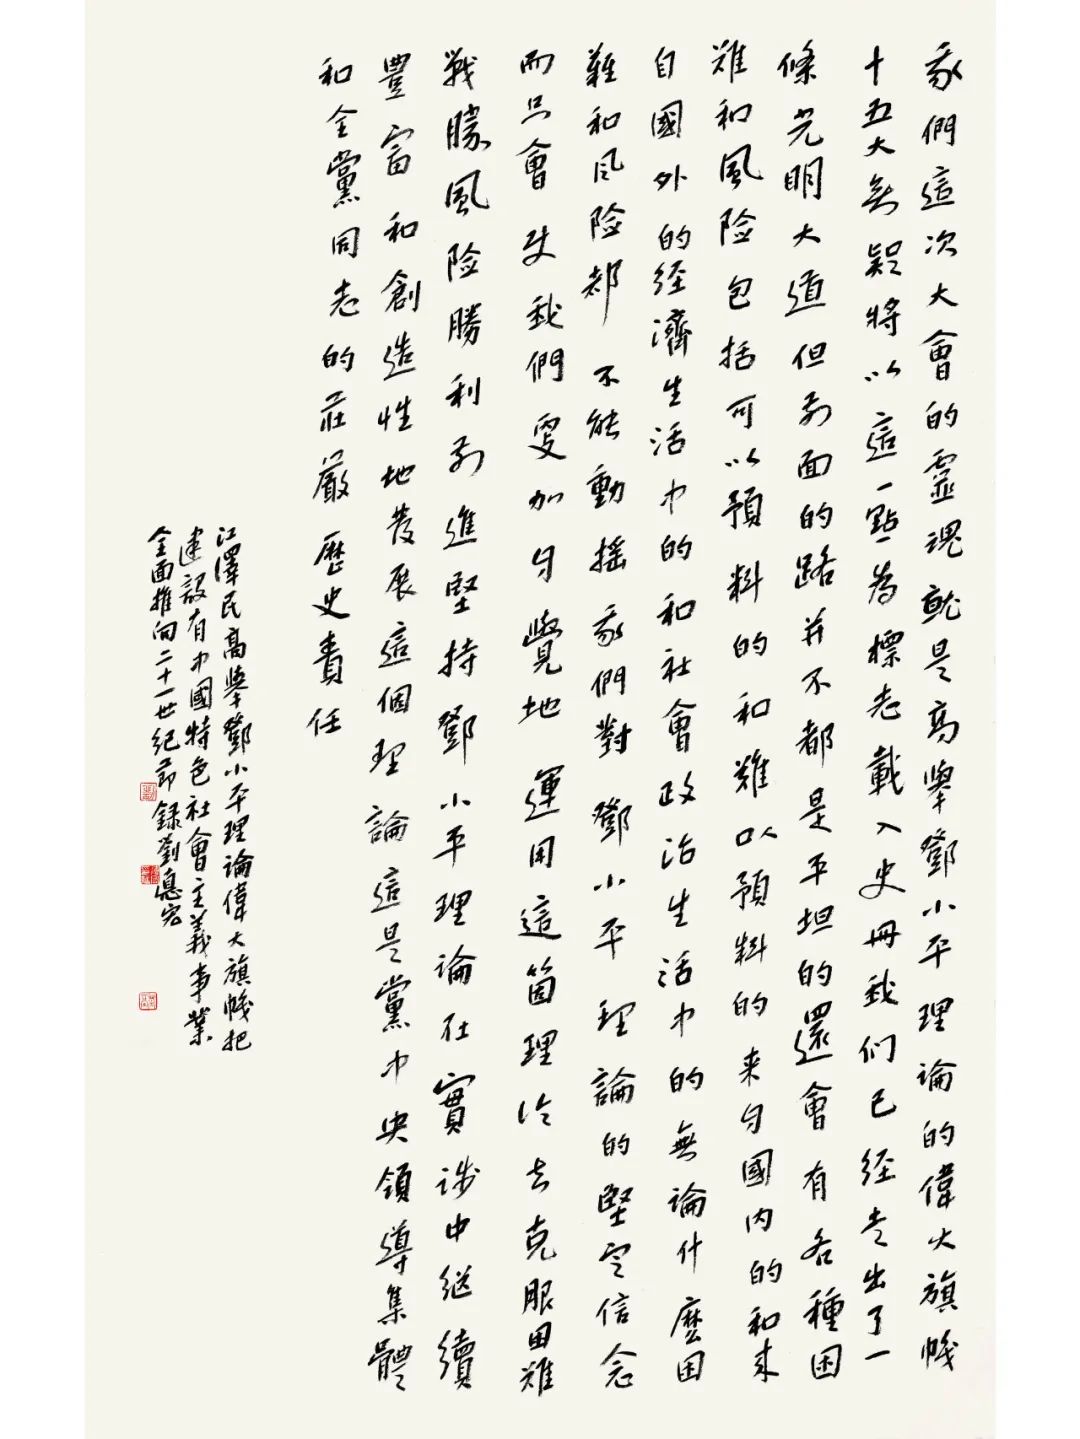 我們這次大會的靈魂就是高舉鄧小平理論的偉大旗幟
十五大無疑將以這一點為標志載入史冊我们已经走出了一
條光明大道但前面的路并不都是平坦的還會有各種困
难和風险包括可以預料的和難以預料的来自國内的和来
自國外的经濟生活中的和社會政治生活中的無論什麽困
難和风险都不能動摇我們對鄧小平理論的堅定信念
而只會使我們更加自覺地運用這箇理论去克服困难
戰勝風险勝利前進堅持鄧小平理論在實践中继續
豐富和創造性地發展這個理論這是黨中央領導集體
和全黨同志的莊嚴歷史責任
江澤民高舉鄧小平理論偉大旗幟把
建設有中國特色社會主義事業
全面推向二十一世纪節録劉惪宏